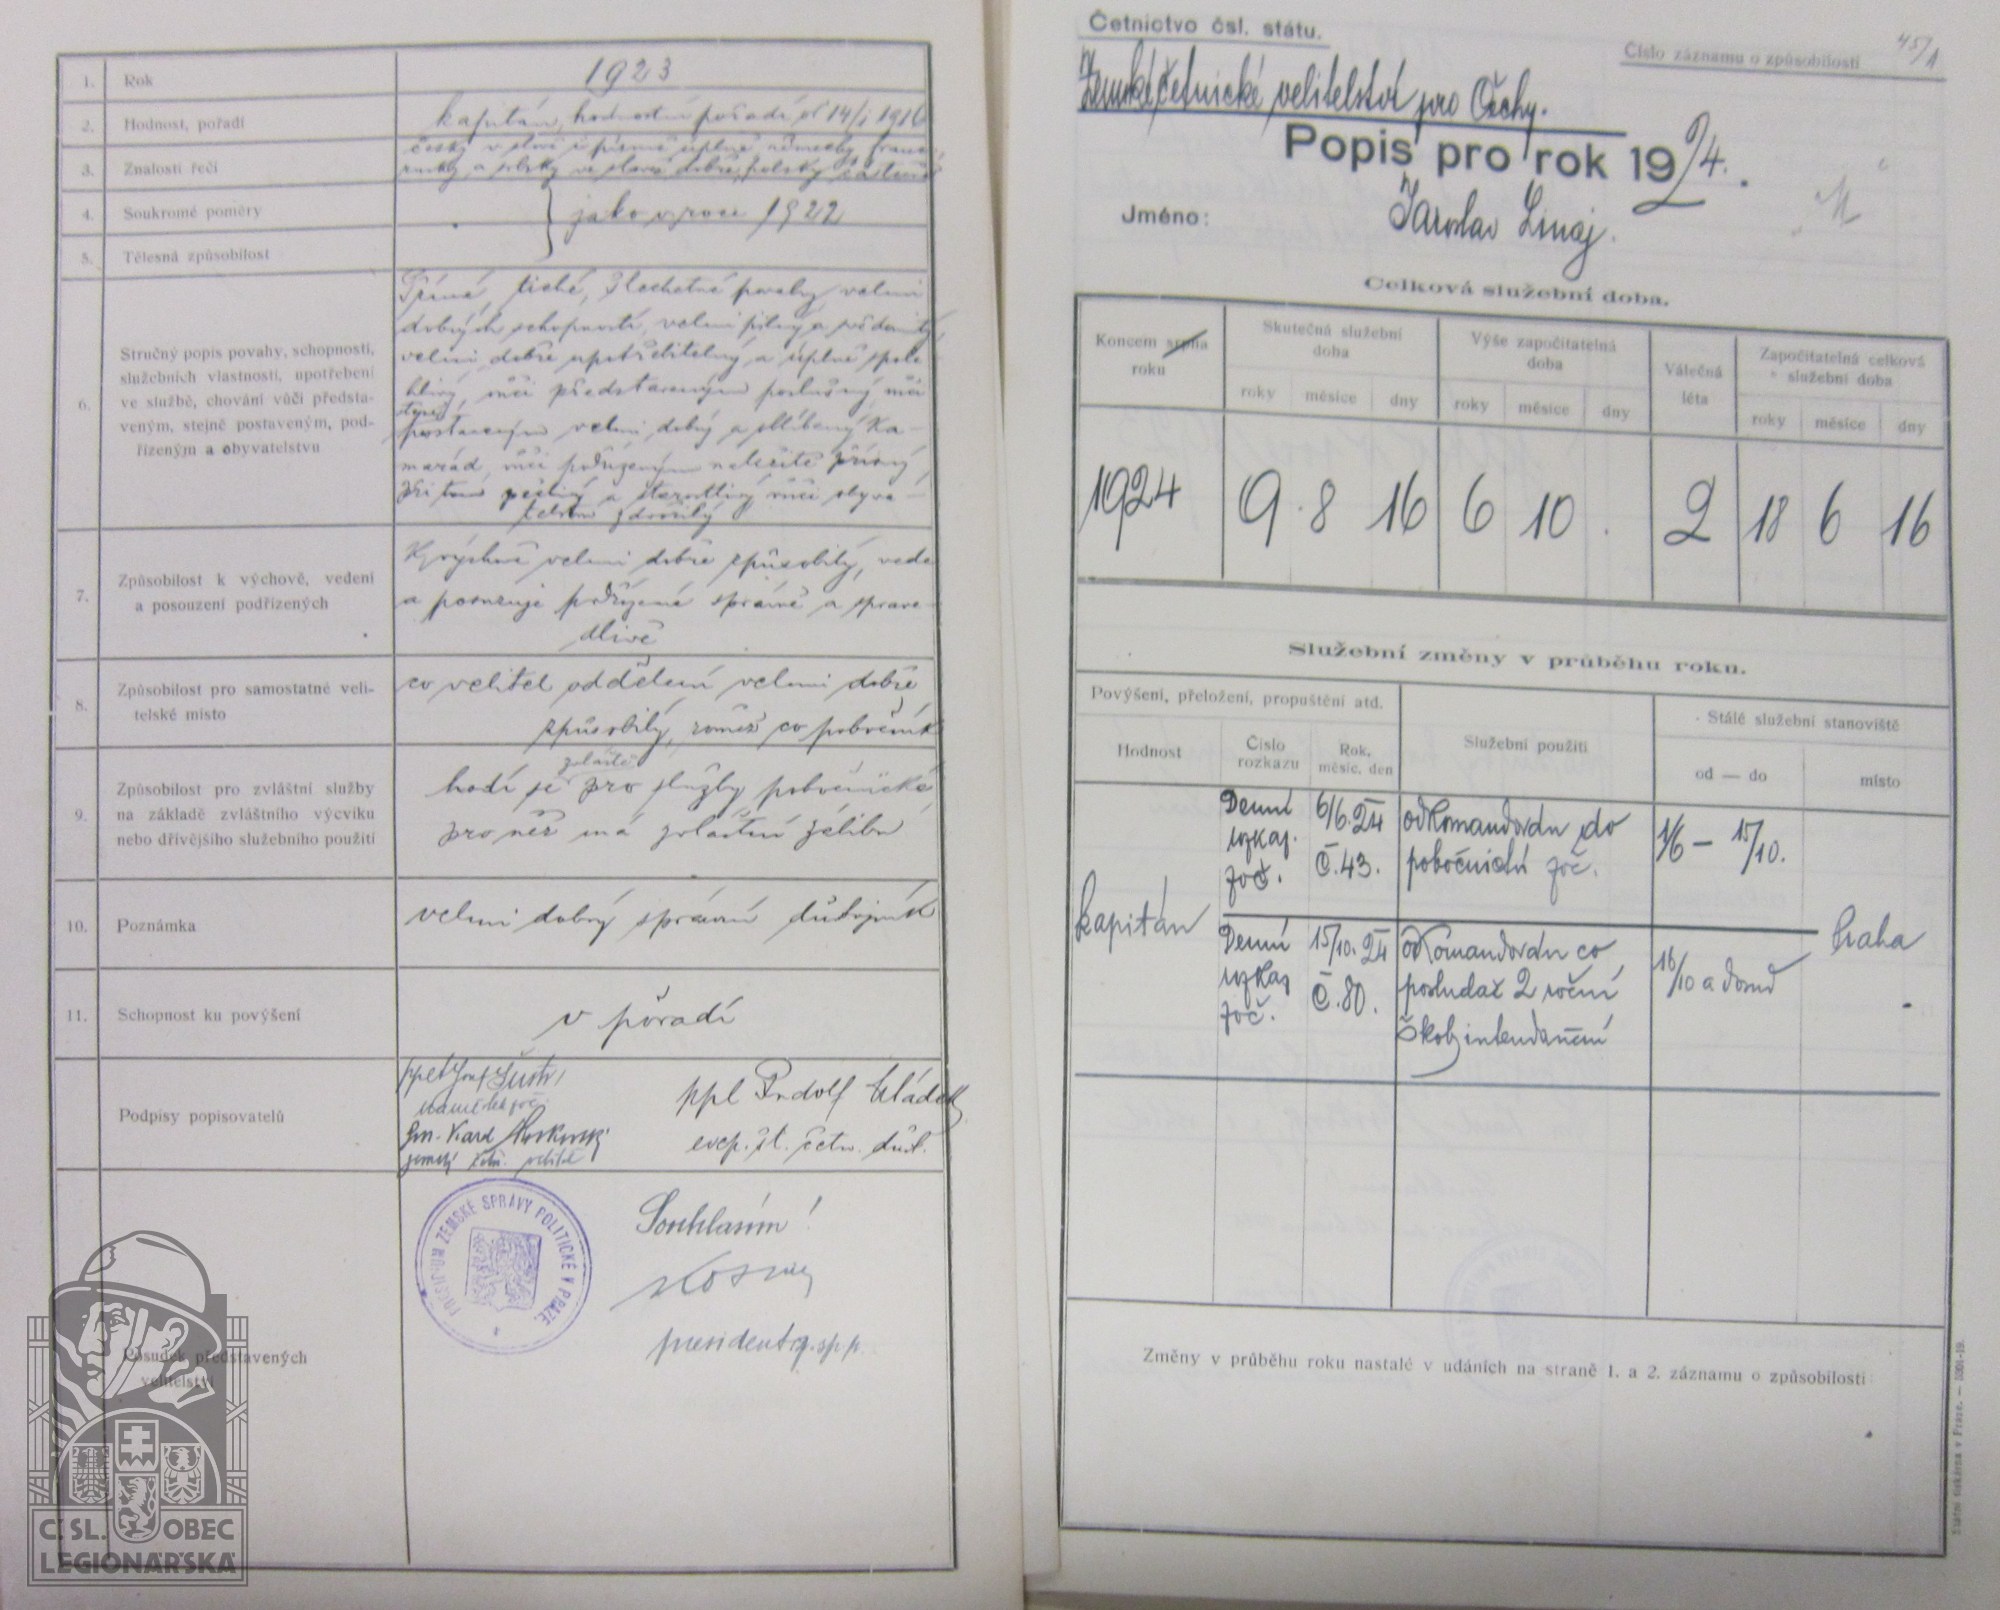 1. Rok 1923
2. Hodnost, pořadí kapitán, hodnostní pořadí od 14/I 1916
3. Znalosti řečí česky v slově i písmě úplně, německy, fran-
a srbsky ve slově dobře, polsky částečně
4. Soukromé poměry
5. Tělesná způsobilost
jako v roce 1922
6. Stručný popis povahy, schopností,
služebních vlastností, upotřebení
ve službě, chování vůči předsta-
veným, stejně postaveným, pod-
řízeným a obyvatelstvu
tiché, šlechetné povahy, velmi
dobrých schopností, velmi pilný a svědomitý,
velmi dobře upotřebitelný a úplně spole-
hlivý, vůči představeným poslušný, vůči
stejně
postaveným velmi dobrý a oblíbený ka-
marád, vůči podřízeným náležitě přísný
při tom pečlivý a starostlivý vůči obyva-
telstvu zdvořilý
7. Způsobilost k výchově, vedení
a posouzení podřízených
K výchově velmi dobře způsobilý, vede
a posuzuje podřízené správně a sprave-
dlivě
8. Způsobilost pro samostatné veli-
telské místo
co velitel oddělení velmi dobře
způsobilý, rovněž co pobočník
9. Způsobilost pro zvláštní služby
na základě zvláštního výcviku
nebo dřívějšího služebního použití
zvláště
hodí se pro služby pobočnické
pro něž má zvláštní zálibu
10. Poznámka velmi dobrý správní důstojník
11. Schopnost ku povýšení v pořadí
Podpisy popisovatelů
ppl Rudolf Hládek
evip. št. četn. důst.
gen. Karel
zemský četn. velitel
PRESIDIUM ZEMSKÉ SPRÁVY POLITICKÉ V PRAZE.
Souhlasím!
Kosina
president z.sp.p.
Posudek představených
velitelství
ČSL. OBEC
LEGIONÁŘSKÁ
Četnictvo čsl. státu.
Číslo záznamu o způsobilosti 45/1
Zemské četnické velitelství pro Čechy.
Popis pro rok 1924.
Jméno: Jaroslav Limaj.
Celková služební doba.
Koncem srpna
roku
Skutečná služební
doba
Výše započitatelná
doba
Válečná
léta
Započitatelná celková
služební doba
roky měsíce dny roky měsíce dny roky měsíce dny
1924 9 8 16 6 10 . 2 18 6 16
Služební změny v průběhu roku.
Povýšení, přeložení, propuštění atd.
Služební použití
Stálé služební stanoviště
Hodnost
Číslo
rozkazu
Rok,
měsíc, den
od — do
místo
kapitán
Denní
rozkaz.
zčv.
6/6. 24
č. 43.
odkomandován do
pobočnictví zčv.
1/6 — 15/10.
Praha
Denní
rozkaz
zčv.
15/10. 24
č. 80.
odkomandován co
posluchač 2 roční
školy intendanční
16/10 a dosud
Změny v průběhu roku nastalé v údáních na straně 1. a 2. záznamu o způsobilosti
Státní tiskárna v Praze. — 3301-19.